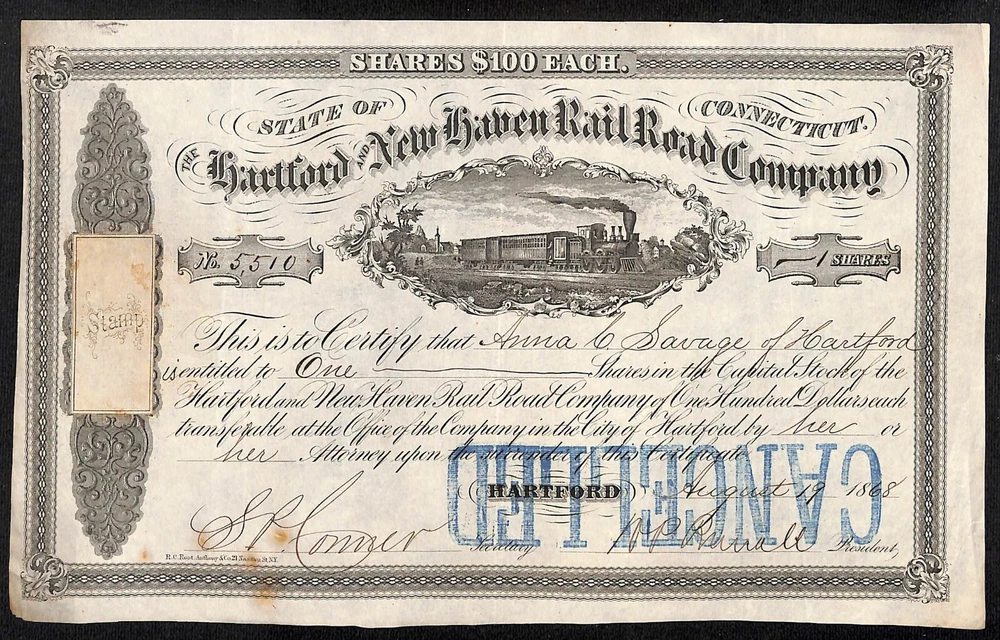 SHARES $100 EACH.
STATE OF CONNECTICUT.
THE Hartford AND New Haven Rail Road Company
No. 5,510
1 SHARES
Stamp
This is to Certify that Anna C Savage of Hartford
is entitled to One Shares in the Capital Stock of the
Hartford and New Haven Rail Road Company of One Hundred Dollars each
transferable at the Office of the Company in the City of Hartford by her or
her Attorney upon the surrender of this Certificate
CANCELLED
HARTFORD August 19 1868
Secretary President
R.C. Root, Anthony & Co. 21 Nassau St. N.Y.